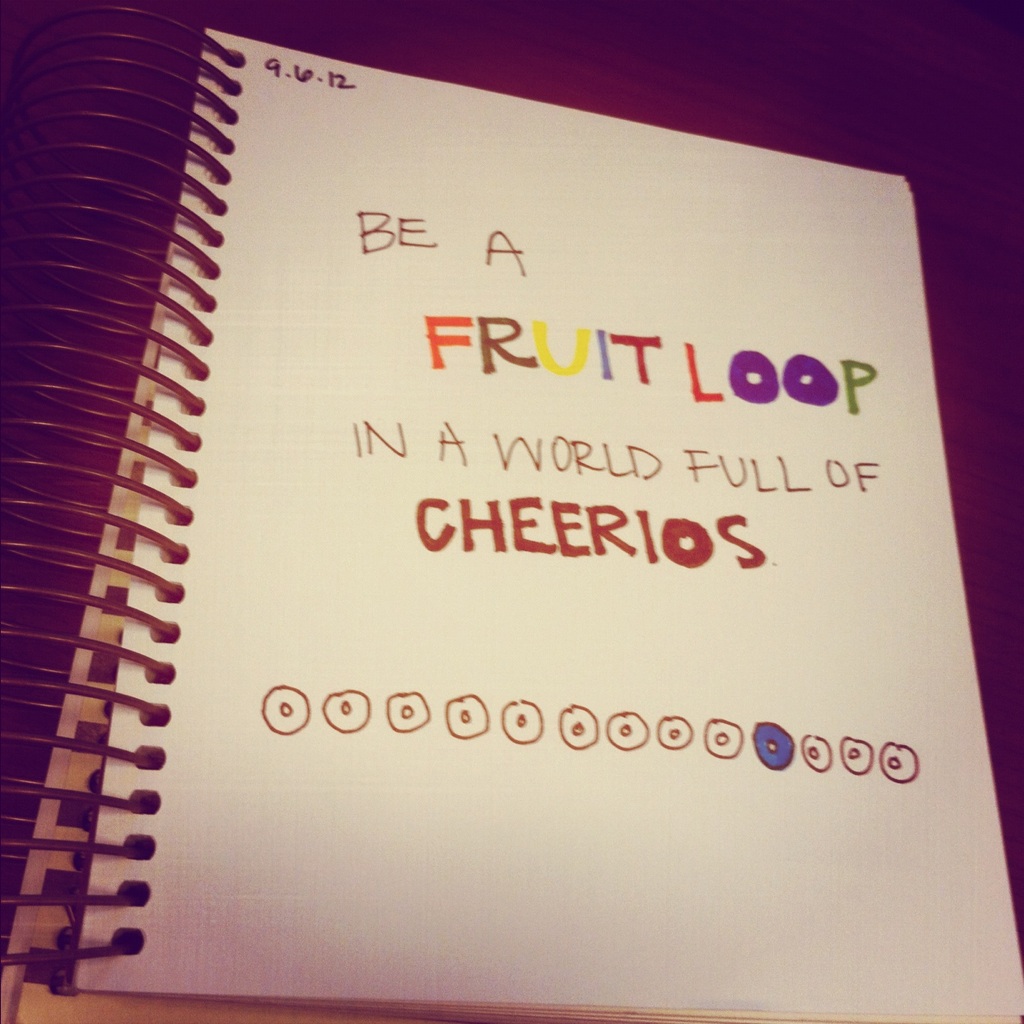 9.6.12
BE A
FRUIT LOOP
IN A WORLD FULL OF
CHEERIOS.